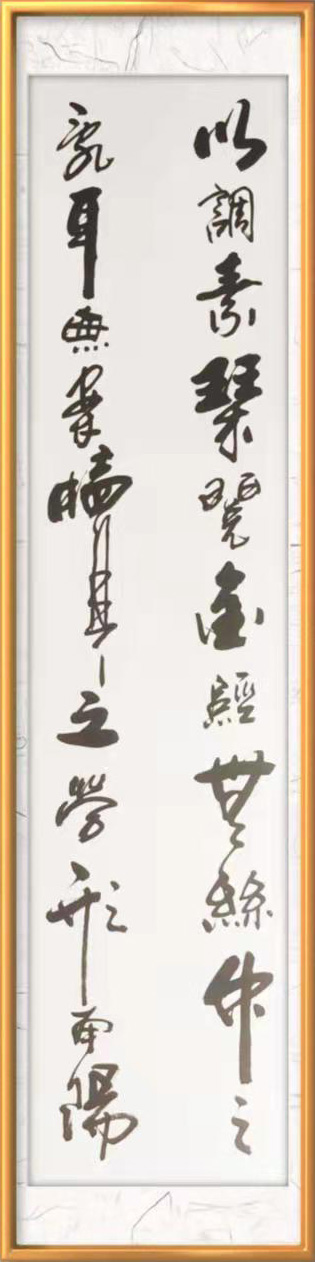 以調素琴閱金經無絲竹之
亂耳無案牘之勞形南陽